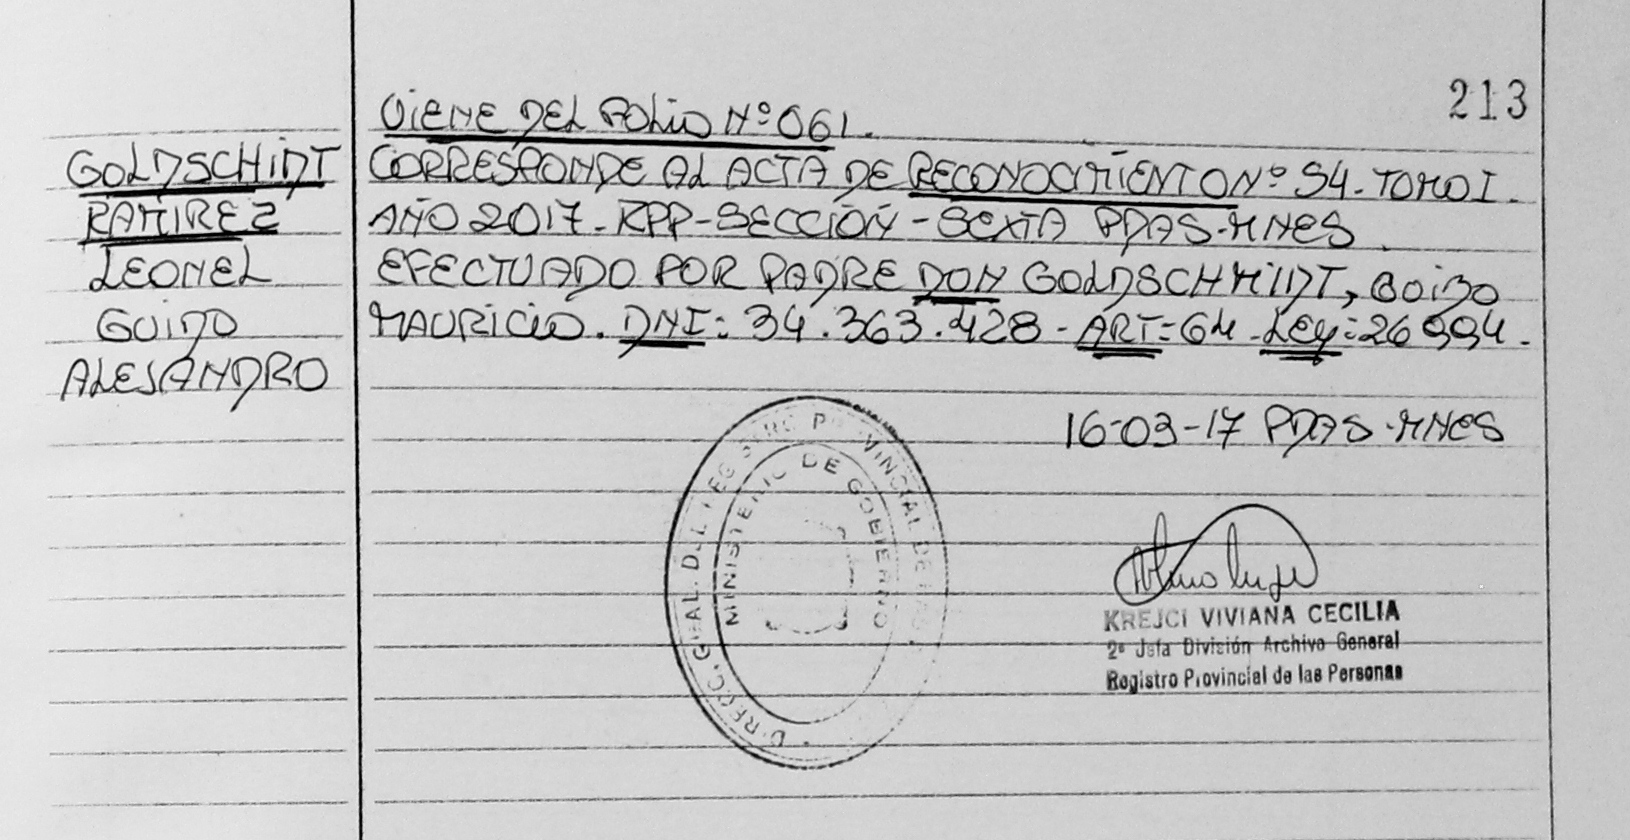 213
VIENE DEL FOLIO Nº 061.
GOLDSCHIDT
RAMIREZ
LEONEL
GUIDO
ALEJANDRO
CORRESPONDE AL ACTA DE RECONOCIMIENTO Nº 54-TOMO I.
AÑO 2017-RPP-SECCIÓN-SEXTA PDAS-MNES.
EFECTUADO POR PADRE DON GOLDSCHMIDT, GUIDO
MAURICIO. DNI: 34.363.428-ART=64-LEY=26994.
16-03-17 PDAS-MNES
MINISTERIO DE GOBIERNO
KREJCI VIVIANA CECILIA
2ª Jefa División Archivo General
Registro Provincial de las Personas